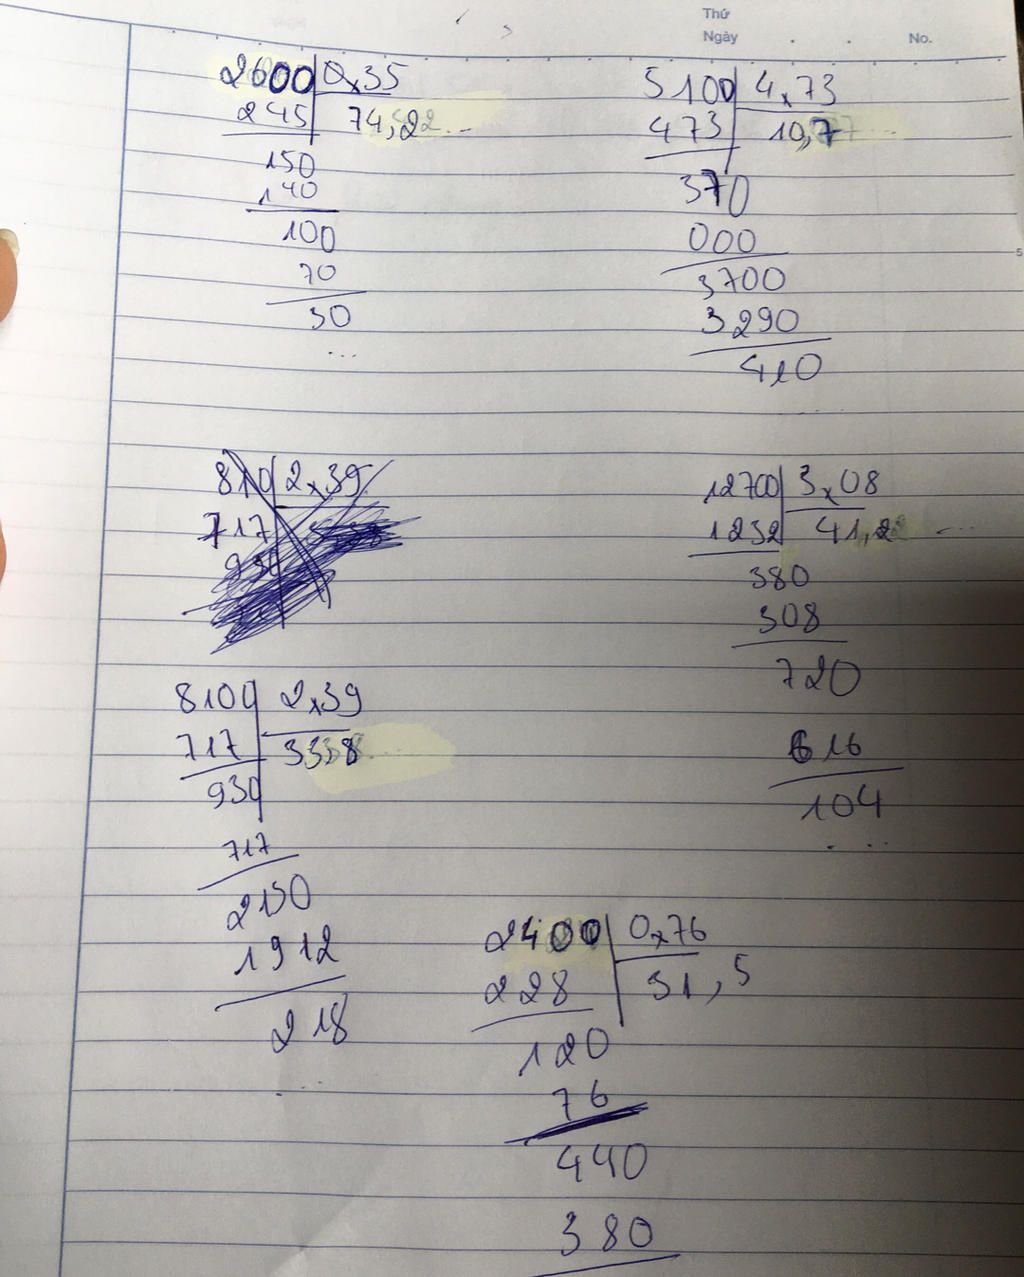 Thứ
Ngày . . No.
2600 0,35
245 74,22...
150
140
100
70
30
...
5100 4,73
473 10,7
370
000
3700
3290
410
5
810 2,39
717
12700 3,08
1232 41,2 ...
380
308
720
616
104
...
8100 2,39
717 3358
930
717
2130
1912
218
...
2400 0,76
228 31,5
120
76
440
380